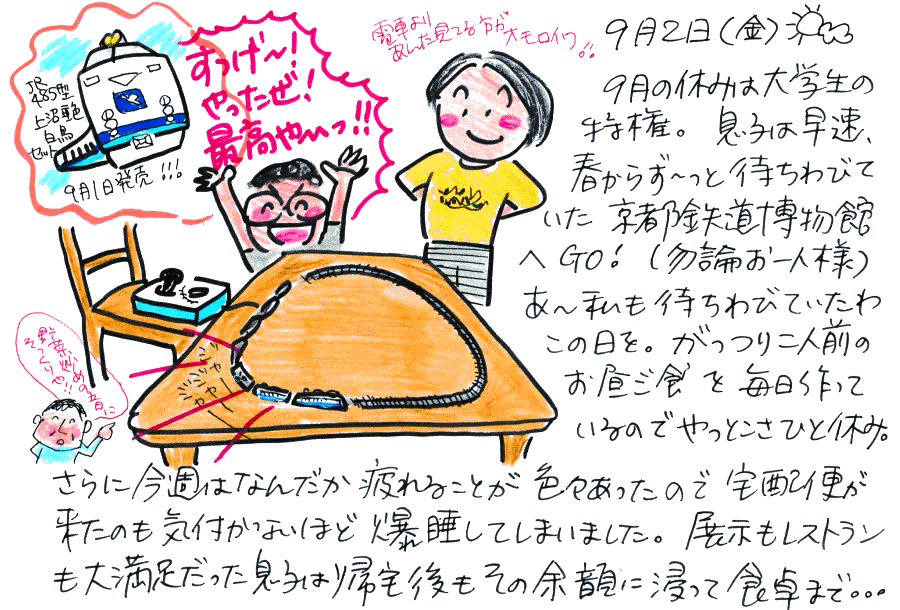 9月2日(金)
電車より
あんた見てる方がオモロイワ!!
すっげ〜!
やったぜ!
最高やんっ!!
JR
485型
上沼垂色
白鳥
セット
9月1日発売!!!
9月の休みは大学生の
特権。息子は早速、
春からず〜っと待ちわびて
いた京都鉄道博物館
へGO!(勿論お一人様)
あ〜私も待ちわびていたわ
この日を。がっつり二人前の
お昼ご飯を毎日作って
いるのでやっとこさひと休み。
野菜炒めの音に
そっくりや!!
ジャー
ジャー
ジャー
さらに今週はなんだか疲れることが色々あったので宅配便が
来たのも気付かないほど爆睡してしまいました。展示もレストラン
も大満足だった息子は帰宅後もその余韻に浸って食卓まで…